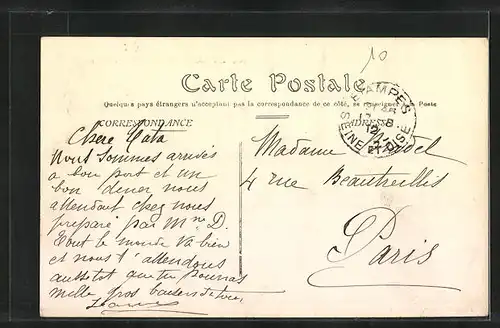 10
Carte Postale
Quelques pays étrangers n'acceptant pas la correspondance de ce côté, se renseigner à la Poste
CORRESPONDANCE
ADRESSE
ETAMPES
SEINE ET OISE
Chère Cata
Nous sommes arrivés
a bon port et un
bon diner nous
attendait chez nous
préparé par Mme D.
Tout le monde va bien
et nous t'attendons
aussitot que tu pourras
mille gros baisers de tous
Madame
4 rue Beautreillis
Paris